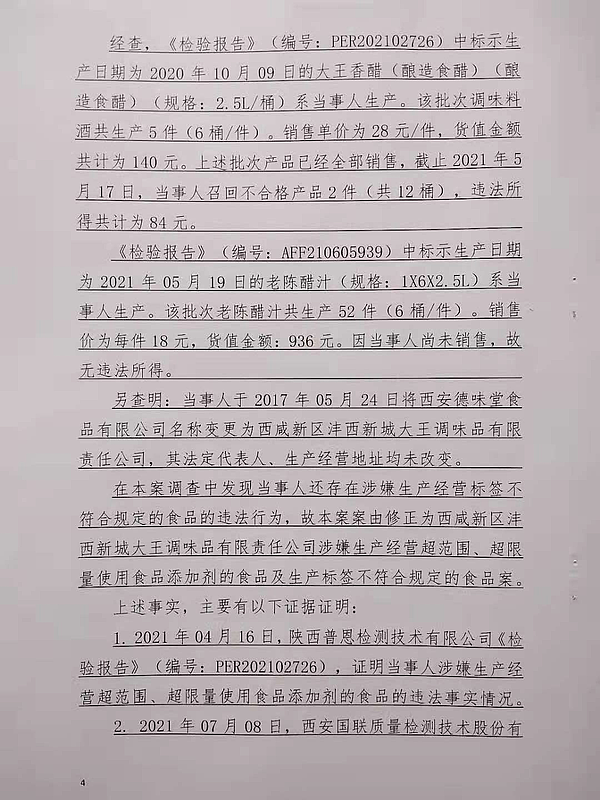 经查，《检验报告》（编号：PER202102726）中标示生
产日期为 2020 年 10 月 09 日的大王香醋（酿造食醋）（酿
造食醋）（规格：2.5L/桶）系当事人生产。该批次调味料
酒共生产 5 件（6 桶/件）。销售单价为 28 元/件，货值金额
共计为 140 元。上述批次产品已经全部销售，截止 2021 年 5
月 17 日，当事人召回不合格产品 2 件（共 12 桶），违法所
得共计为 84 元。
《检验报告》（编号：AFF210605939）中标示生产日期
为 2021 年 05 月 19 日的老陈醋汁（规格：1X6X2.5L）系当
事人生产。该批次老陈醋汁共生产 52 件（6 桶/件）。销售
价为每件 18 元，货值金额：936 元。因当事人尚未销售，故
无违法所得。
另查明：当事人于 2017 年 05 月 24 日将西安德味堂食
品有限公司名称变更为西咸新区沣西新城大王调味品有限
责任公司，其法定代表人、生产经营地址均未改变。
在本案调查中发现当事人还存在涉嫌生产经营标签不
符合规定的食品的违法行为，故本案案由修正为西咸新区沣
西新城大王调味品有限责任公司涉嫌生产经营超范围、超限
量使用食品添加剂的食品及生产标签不符合规定的食品案。
上述事实，主要有以下证据证明：
1. 2021 年 04 月 16 日，陕西普恩检测技术有限公司《检
验报告》（编号：PER202102726），证明当事人涉嫌生产经
营超范围、超限量使用食品添加剂的食品的违法事实情况。
2. 2021 年 07 月 08 日，西安国联质量检测技术股份有
4